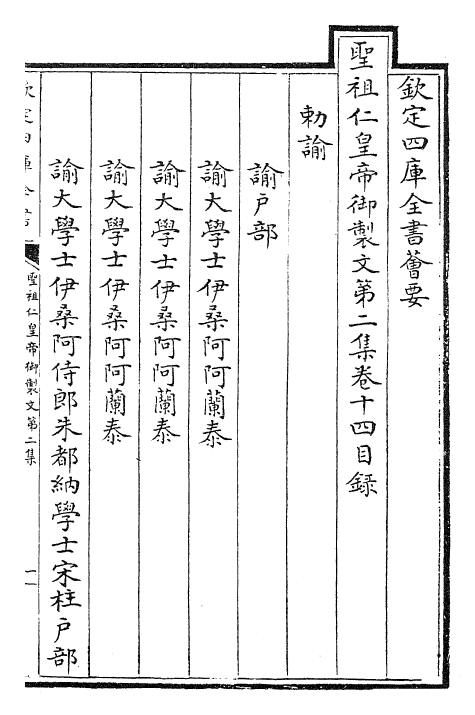 欽定四庫全書薈要
聖祖仁皇帝御製文第二集卷十四目録
勅諭
諭户部
諭大學士伊桑阿阿蘭泰
諭大學士伊桑阿阿蘭泰
諭大學士伊桑阿阿蘭泰
諭大學士伊桑阿侍郎朱都納學士宋柱户部
欽定四庫全書
聖祖仁皇帝御製文第二集
一